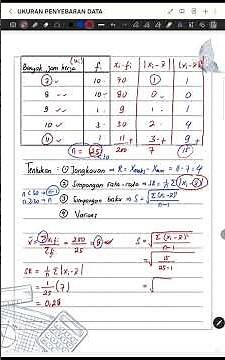 UKURAN PENYEBARAN DATA
Banyak jam kerja (xi) fi xi.fi |xi-x̄| (xi-x̄)²
7 10 70 1 1
8 10 80 0 0
9 1 9 1 1
10 3 30 2 4
11 1 11 3 9
n = 25 200 7 15
Tentukan : ① Jangkauan → R = Xmaks - Xmin = 11-7 = 4
② Simpangan rata-rata → SR = 1/n Σ |xi-x̄|
③ Simpangan baku → S = √ Σ(xi-x̄)² / n-1
④ Varians
x̄ = Σxi.fi / Σf = 200 / 25 = 8
S = √ Σ(xi-x̄)² / n-1
SR = 1/n Σ |xi-x̄|
= √ 15 / 25-1
= 1/25 (7)
= √
= 0,28